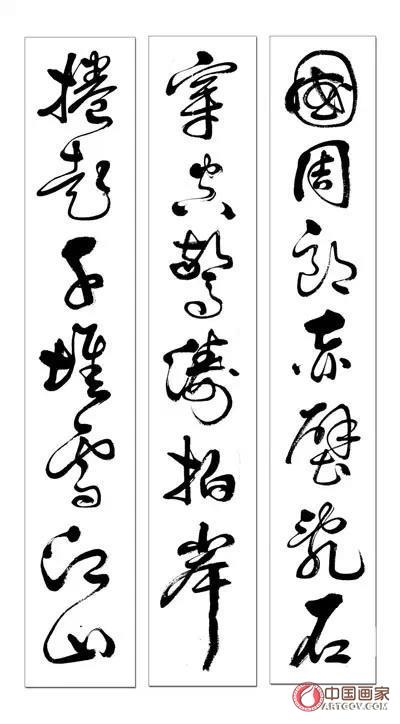 國周郎赤壁乱石
穿空驚濤拍岸
捲起千堆雪江山
中国画家
ARTGOV.COM